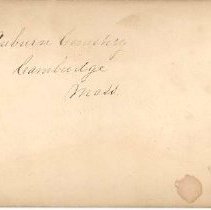 Auburn Cemetery
Cambridge
Mass